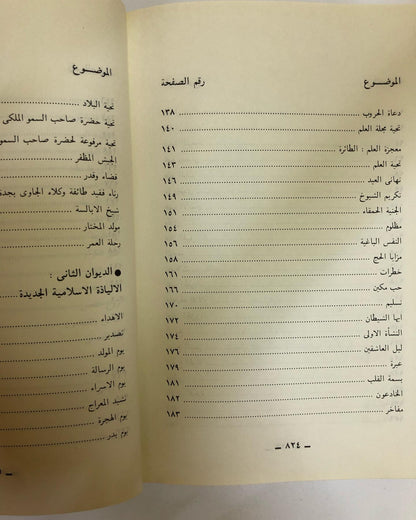 الموضوع رقم الصفحة
دعاة الحروب ١٣٨
تحية مجلة العلم ١٤٠
معجزة العلم : الطائرة ١٤١
تحية العلم ١٤٣
تهانى العيد ١٤٦
تكريم الشيوخ ١٤٩
الجنية الحمقاء ١٥١
مظلوم ١٥٤
النفس الباغية ١٥٦
مزايا الحج ١٥٨
خطرات ١٦١
حب مكين ١٦٦
تسليم ١٧٠
ايها الشيطان ١٧٢
النشأة الاولى ١٧٤
ليل العاشقين ١٧٦
عبرة ١٧٩
بسمة القلب ١٨١
الخادعون ١٨٢
مفاخر ١٨٣
– ٨٢٤ –
الموضوع
تحية البلاد
تحية حضرة صاحب السمو الملكى
تحية مرفوعة لحضرة صاحب السمو
الجيش المظفر
قضاء وقدر
رثاء فقيد طائفة وكلاء الجاوى بجدة
شيخ الابالسة
مولد المختار
رحلة العمر
● الديوان الثانى :
الالياذة الاسلامية الجديدة
الاهداء
تصدير
يوم المولد
يوم الرسالة
يوم الاسراء
نشيد المعراج
يوم الهجرة
يوم بدر